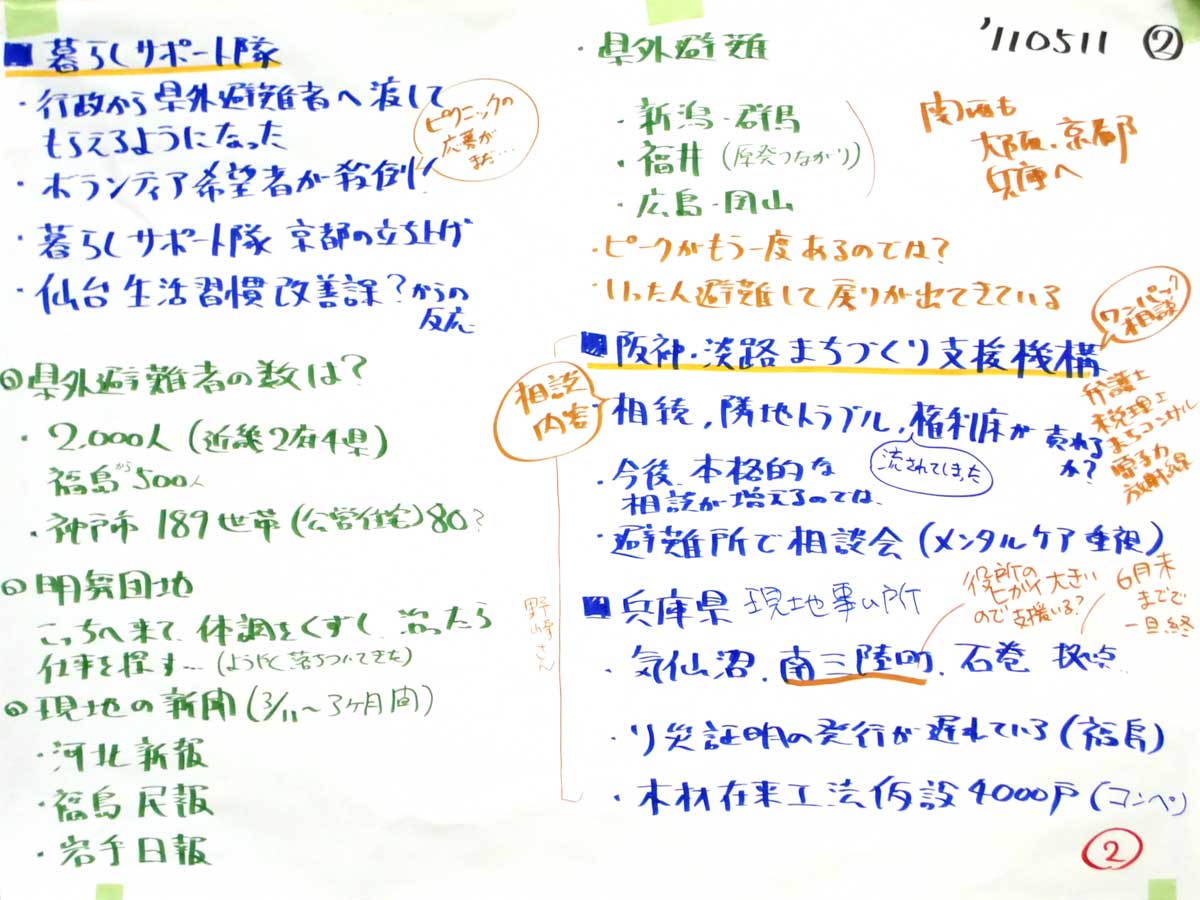 ■ 暮らしサポート隊
・行政から県外避難者へ渡して
もらえるようになった
ピクニックの
応募が
まだ…
・ボランティア希望者が殺到!
・暮らしサポート隊 京都の立ち上げ
・仙台 生活習慣改善課?からの
反応
◎県外避難者の数は?
・2,000人(近畿2府4県)
福島から500人
・神戸市 189世帯(公営住宅)80?
◎明舞団地
こっちへ来て、体調をくずし、治ったら
仕事を探す…(ようやく落ちついてきた)
◎現地の新聞(3/11〜3ヶ月間)
・河北新報
・福島民報
・岩手日報
'110511 ②
・県外避難
・新潟・群馬
・福井(原発つながり)
・広島・岡山
関西も
大阪、京都
兵庫へ
・ピークがもう一度あるのでは?
・いったん避難して戻りが出てきている
■阪神・淡路まちづくり支援機構
ワンパック
相談
弁護士
税理士
まちコンサル
原子力
放射線
相談
内容
・相続、隣地トラブル、権利床が売れる
か?
流されてしまった
・今後、本格的な
相談が増えるのでは、
・避難所で相談会(メンタルケア重視)
野崎さん
■兵庫県 現地事ム所
役所のヒガイ大きい
ので支援いる?
6月末
までで
一旦終
・気仙沼、南三陸町、石巻 拠点
・り災証明の発行が遅れている(福島)
・木材在来工法仮設4000戸(コンペ)
②